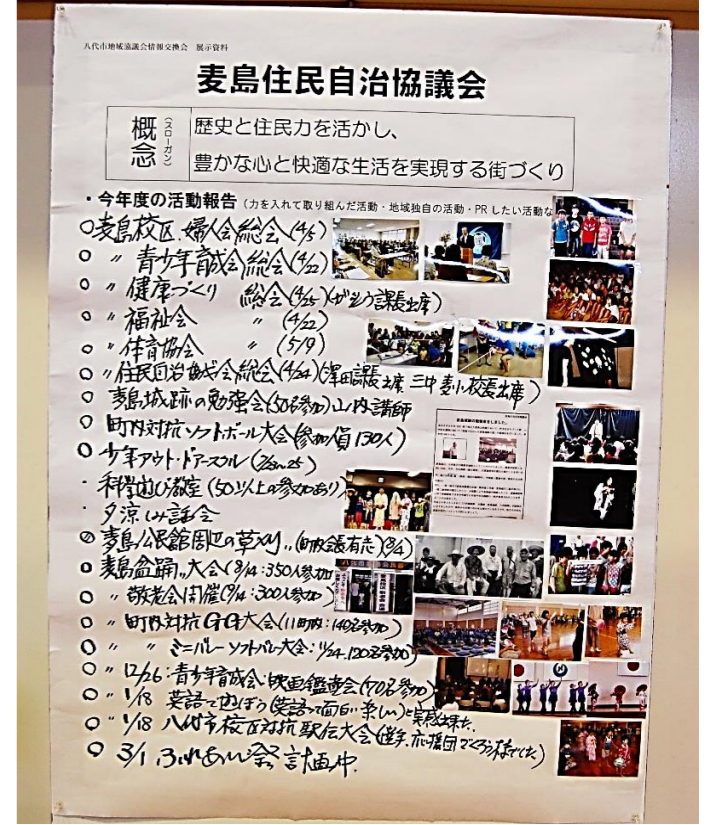 八代市地域協議会情報交換会 展示資料
麦島住民自治協議会
概念
(スローガン)
歴史と住民力を活かし、
豊かな心と快適な生活を実現する街づくり
・今年度の活動報告（力を入れて取り組んだ活動・地域独自の活動・PRしたい活動な
○麦島校区.婦人会総会(4/5)
○ 〃 青少年育成会総会(4/22)
○ 〃 健康づくり 総会(4/25) 課長出席)
○ 〃 福祉会 〃 (4/22)
○ 〃 体育協会 〃 (5/9)
○ 〃 住民自治協ギ会総会(4/24)(澤田課長出席 三中 麦小校長出席)
○ 麦島城跡の勉強会(50名参加)山内講師
○ 町内対抗ソフトボール大会(参加人員130人)
○ 少年アウト・ドアースクル
・科学遊び教室(50以上の参加あり)
・夕涼しみ話会
○ 麦島公民館周辺の草刈り、(町内会長有志)(8/4)
○ 麦島盆踊り大会(8/14:350人参加
○ 〃 敬老会開催(9/14:300人参加)
○ 〃 町内対抗GG大会(11町内:140名参加)
○ 〃 〃 ミニバレーソフトバレー大会:11/24.120名参加)
○ 〃 12/26:青少年育成会:映画鑑賞会(70名参加)
○ 〃 1/18 英語で遊ぼう(英語って面白い楽しい)と実感出来た.
○ 〃 1/18 八代市校区対抗駅伝大会(選手.応援団でくろう様でした)
○ 3/1 ふれあい祭り計画中.